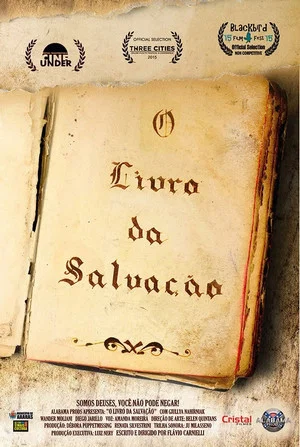 NINE UNDER
OFFICIAL SELECTION
THREE CITIES
2015
BLACKBIRD
'15 FILM FEST '15
Official Selection
NON COMPETITIVE
O
Livro
da
Salvação
SOMOS DEUSES, VOCÊ NÃO PODE NEGAR!
ALABAMA PRODS APRESENTA: "O LIVRO DA SALVAÇÃO" COM GIULLYA NAHIRNIAK
WANDER MOLIANI DIEGO JABELLO VOZ: AMANDA MOREIRA DIREÇÃO DE ARTE: HELEN QUINTANS
PRODUÇÃO: DÉBORA POPPETMESSING RENAN SILVESTRINI TRILHA SONORA: JU MILASSENO
PRODUÇÃO EXECUTIVA: LUIZ NERY ESCRITO E DIRIGIDO POR FLÁVIO CARNIELLI
Cristal